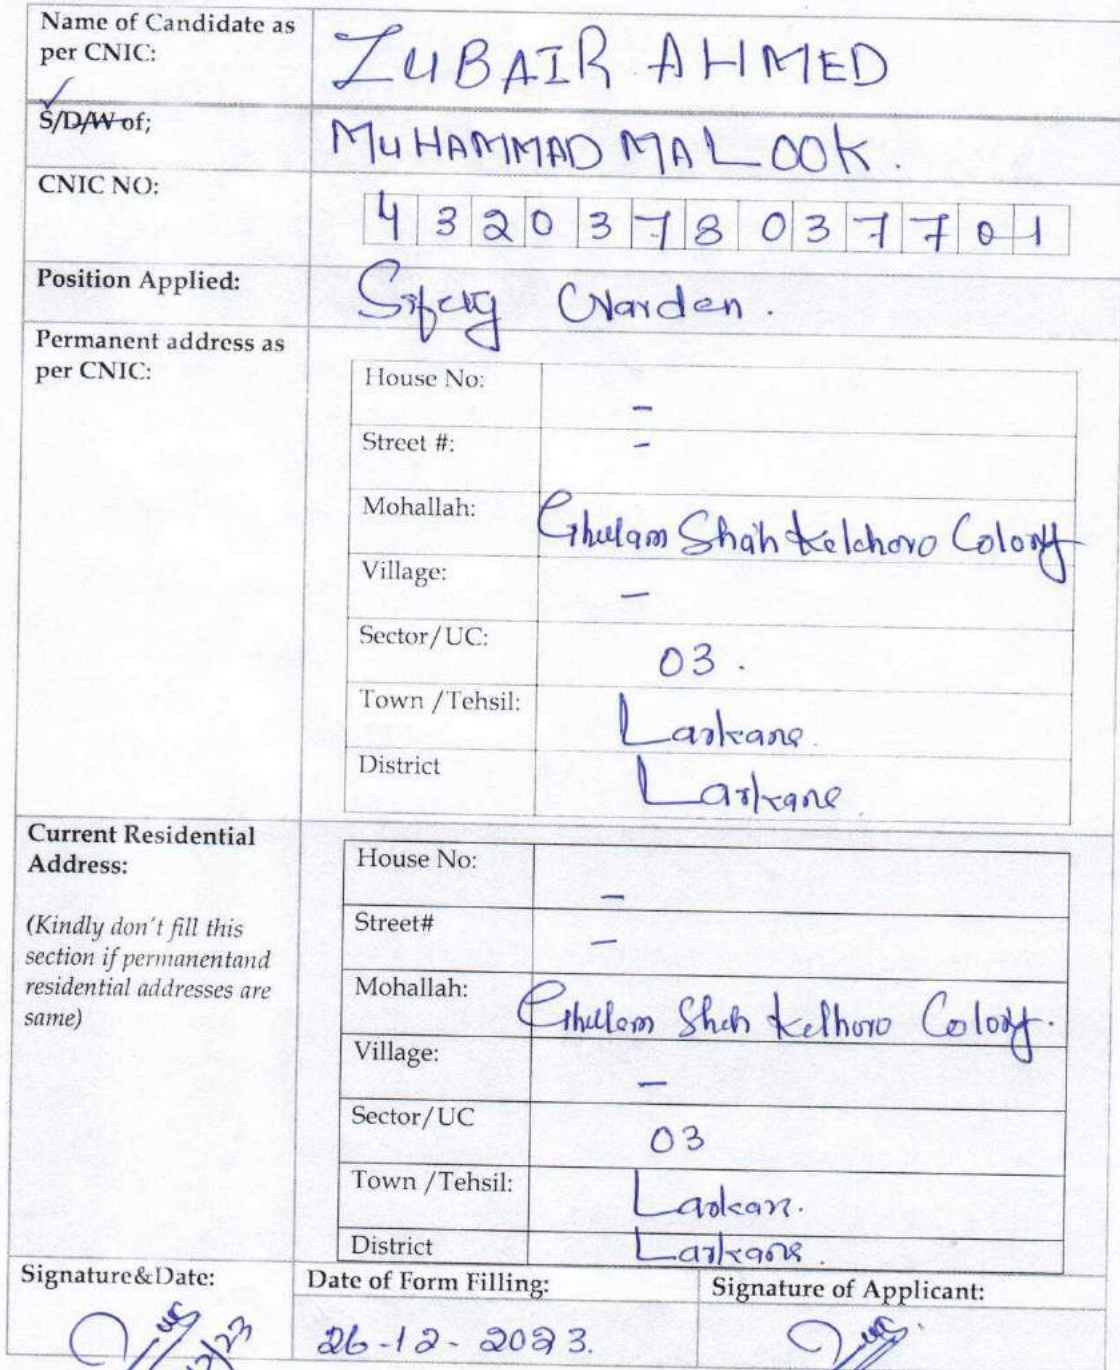 Name of Candidate as
per CNIC:
ZUBAIR AHMED
S/D/W of;
MUHAMMAD MALOOK.
CNIC NO:
4 3 2 0 3 7 8 0 3 7 7 0 1
Position Applied:
Warden.
Permanent address as
per CNIC:
House No:
-
Street #:
-
Mohallah:
Ghulam Shah Kelchoro Colony
Village:
-
Sector/UC:
03.
Town /Tehsil:
Larkane.
District
Larkane.
Current Residential
Address:
(Kindly don't fill this
section if permanentand
residential addresses are
same)
House No:
-
Street#
-
Mohallah:
Ghulam Shah Kelhoro Colony.
Village:
-
Sector/UC
03
Town /Tehsil:
Larkan.
District
Larkane.
Signature&Date:
Date of Form Filling:
Signature of Applicant:
26-12-2023.